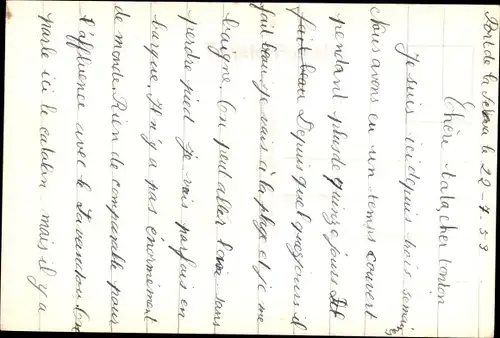 Port de la Selva le 22-7-59
Chère tata cher tonton
Je suis ici depuis trois semaines
Nous avons eu un temps couvert
pendant plus de quinze jours
Depuis quelques jours il
fait beau, je vais à la plage et je me
baigne. On peut aller loin sans
perdre pied je vais parfois en
barque. Il n'y a pas énormément
de monde. Rien de comparable pour
l'affluence avec le Lavandou. On
parle ici le catalan mais il y a